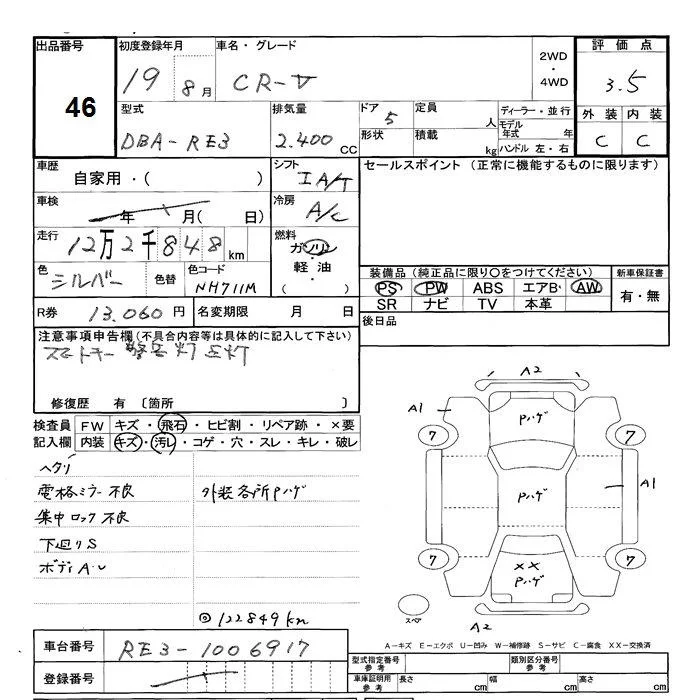 出品番号
46
初度登録年月
19 8月
車名・グレード
CR-V
2WD
・
4WD
評価点
3.5
外装 内装
C C
型式
DBA-RE3
排気量
2.400 CC
ドア 5
形状
定員 人
積載 kg
ディーラー・並行
モデル年式 年
ハンドル 左・右
車歴
自家用・( )
車検
年 月( 日)
走行
12万2千848km
色
シルバー
色替
色コード
NH711M
シフト
IA/T
冷房
A/C
燃料
ガソリン
軽油
( ・ )
セールスポイント (正常に機能するものに限ります)
装備品 (純正品に限り〇をつけてください)
PS PW ABS エアB・ AW
SR ナビ TV 本革
新車保証書
有・無
後日品
R券 13.060円
名変期限 月 日
注意事項申告欄(不具合内容等は具体的に記入して下さい)
スマートキー 警告灯 点灯
修復歴 有 〔箇所 〕
検査員記入欄
FW キズ・飛石・ヒビ割・リペア跡・×要
内装 キズ・汚レ・コゲ・穴・スレ・キレ・破レ
ヘタリ
電格ミラー不良 外装各所Pハゲ
集中ロック不良
下廻りS
ボディA・U
◎122849km
A2
A1
Pハゲ
7 7
Pハゲ
A1
7 7
××
Pハゲ
スペア
A2
A-キズ E-エクボ U-凹み W-補修跡 S-サビ C-腐食 XX-交換済
車台番号
RE3-1006917
登録番号
型式指定番号
参考
類別区分番号
参考
車庫証明用
参考
長さ cm 幅 cm 高さ cm